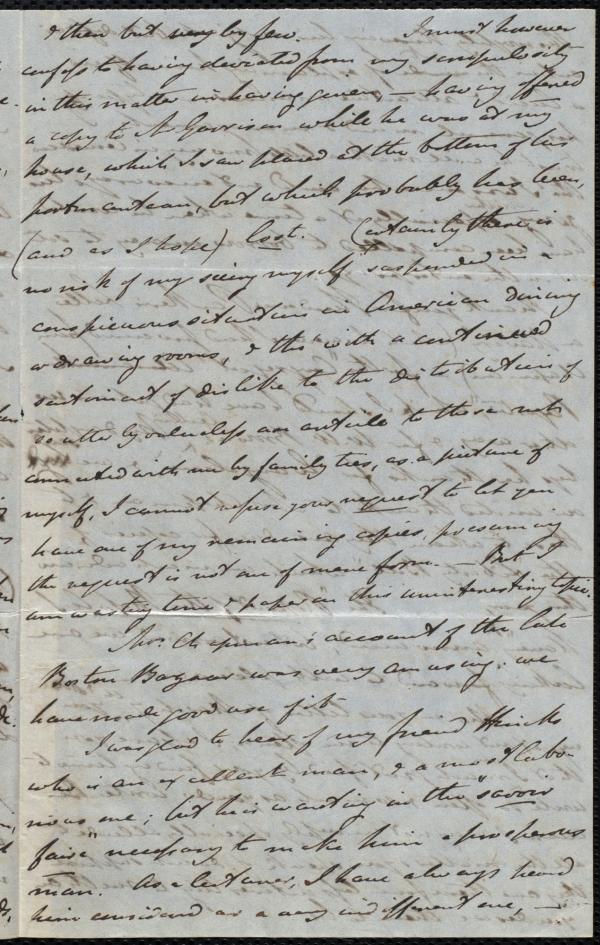 & then but very by few. I must however
confess to having deviated from my scrupulosity
in this matter in having given, — having offered
a copy to Mr Garrison while he was at my
house, which I saw placed at the bottom of his
portmanteau, but which probably has been,
(and as I hope) lost. Certainly there is
no risk of my seeing myself "suspended in a
conspicuous situation in American dining
or drawing rooms, & tho' with a continued
sentiment of dislike to the distribution of
so utterly valueless an article to those not
connected with me by family ties, as a picture of
myself, I cannot refuse your request to let you
have one of my remaining copies, presuming
the request is not one of mere form. — But I
am wasting time & paper on this uninteresting topic.
Mrs. Chapman's account of the late
Boston Bazaar was very amusing: we
have made good use of it.
I was glad to hear of my friend Hincks
who is an excellent man, & a most labo-
rious one; but he is wanting in the "savoir
faire" necessary to make him a prosperous
man. As a lecturer, I have always heard
him considered as a very indifferent one, —